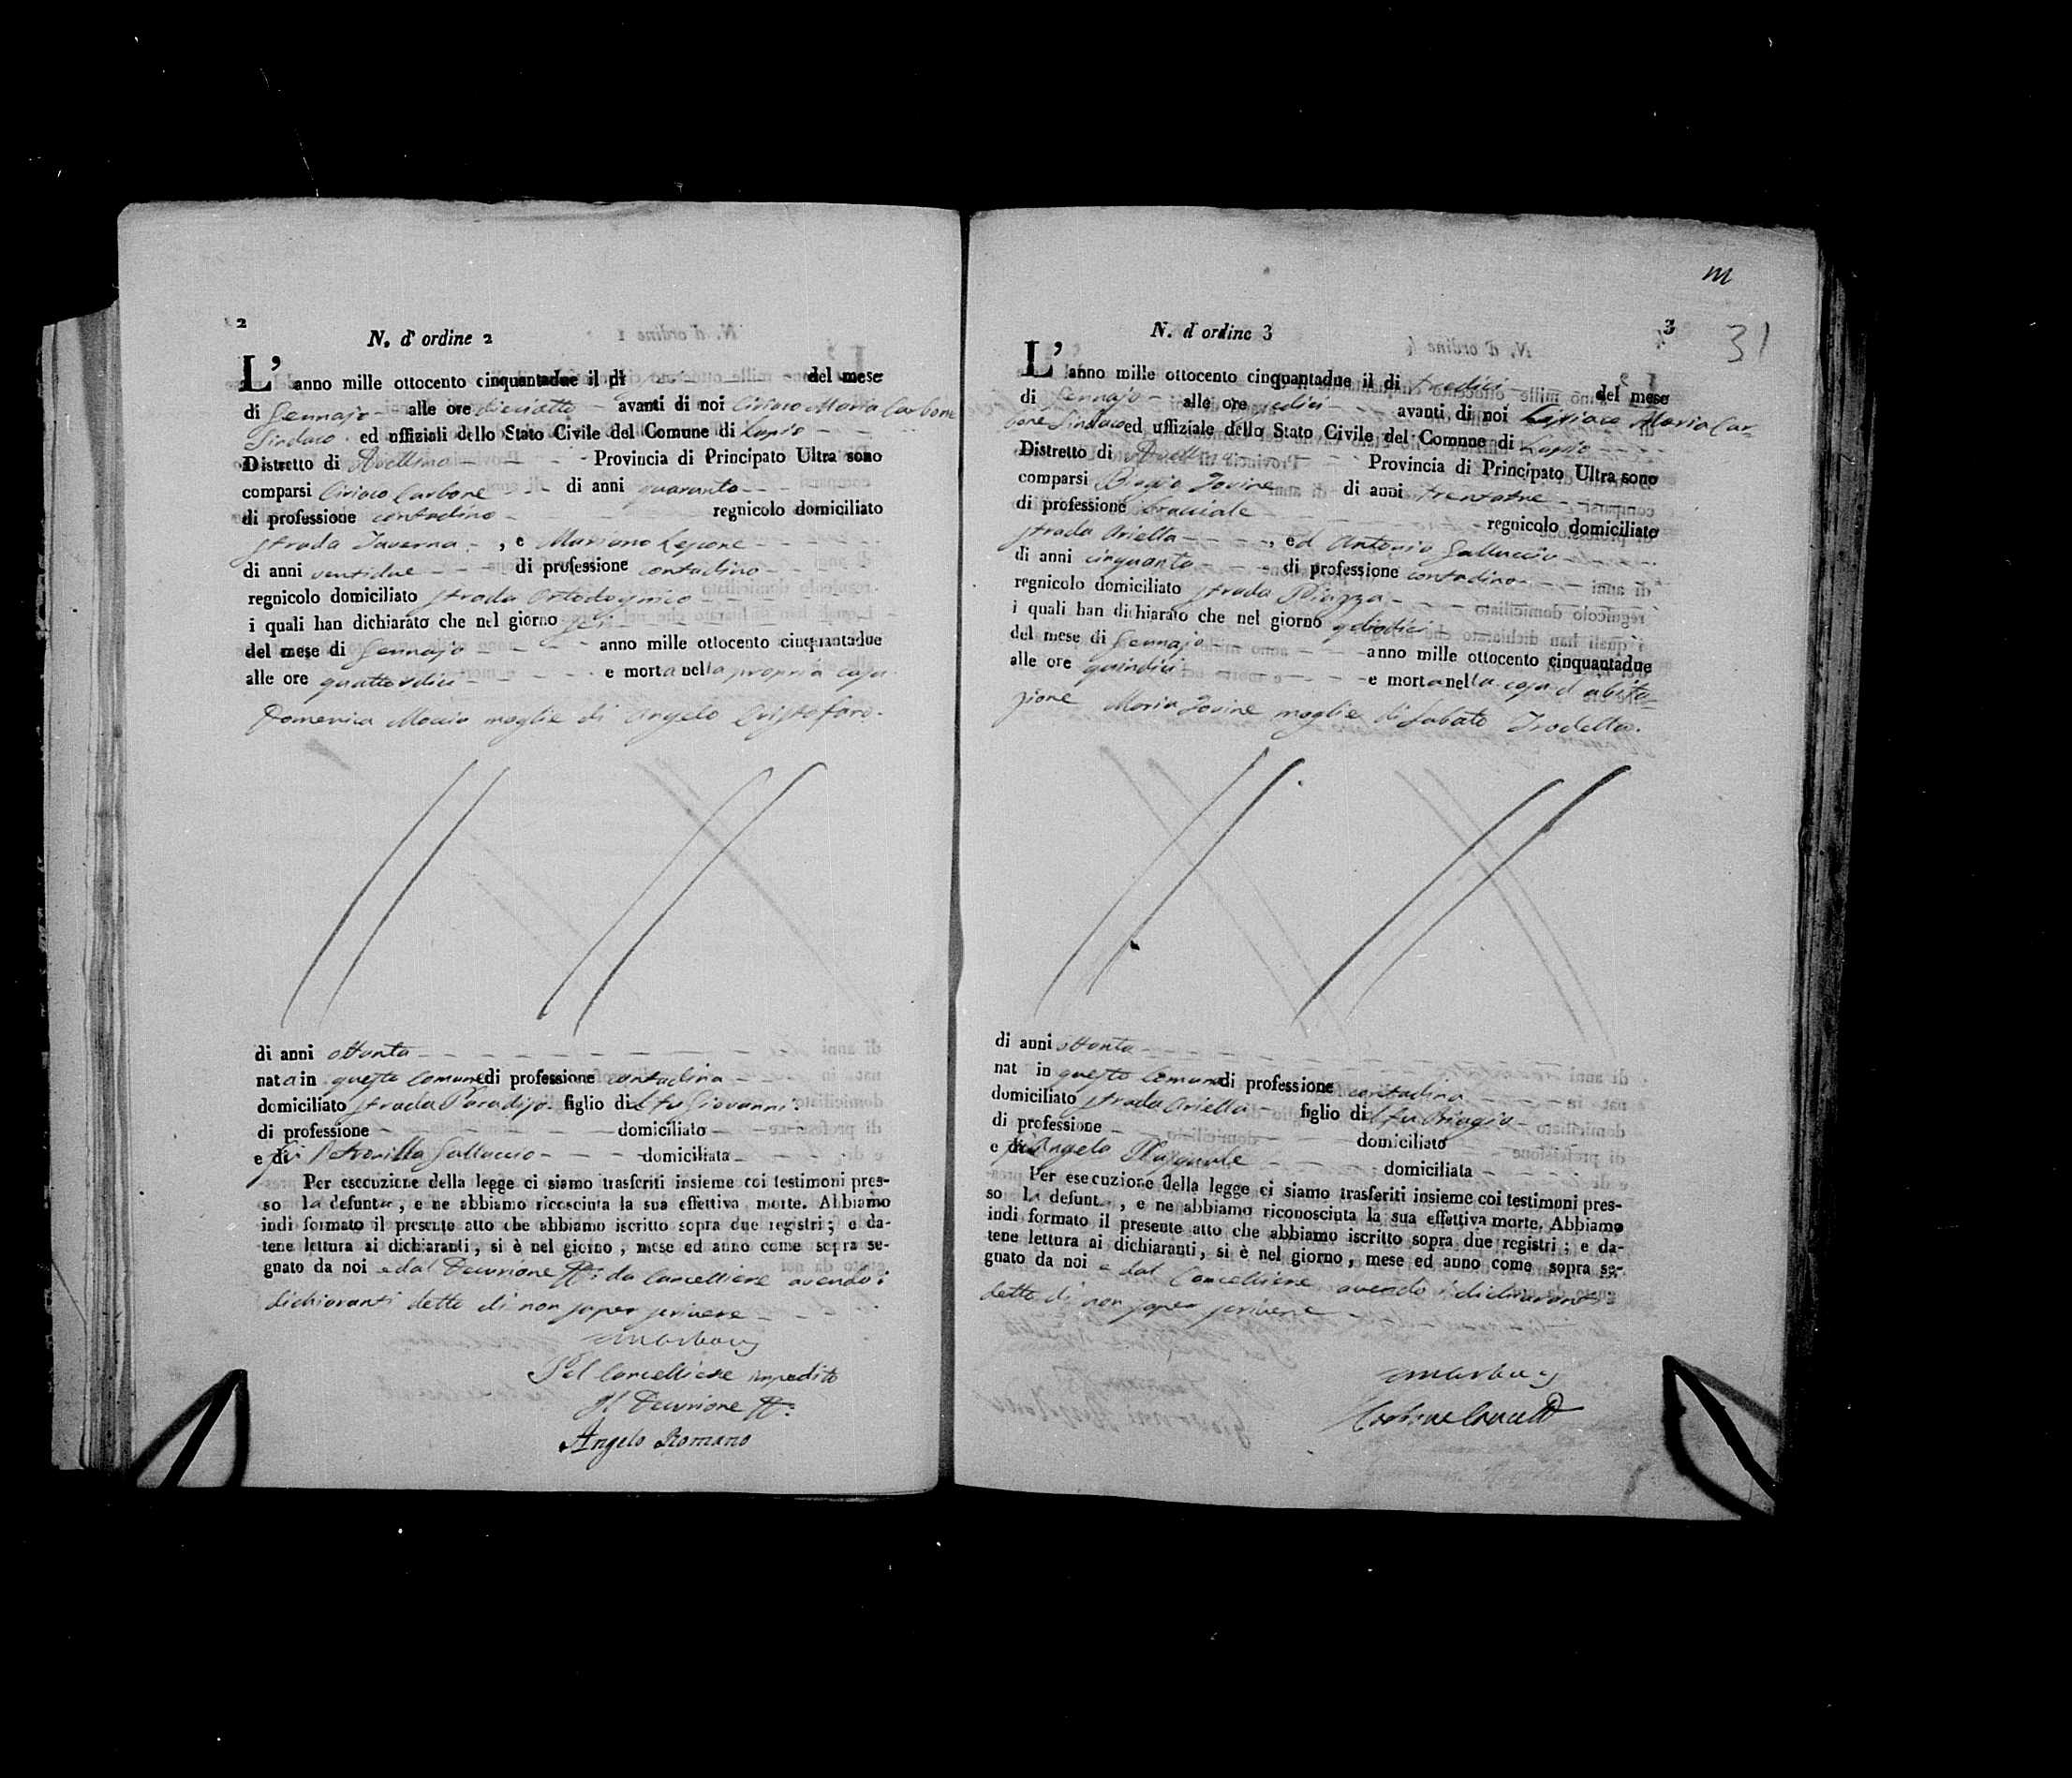 2
N. d' ordine 2
L' anno mille ottocento cinquantadue il dì del mese
di Gennajo alle ore dieciotto avanti di noi Ciriaco Maria Carbone
Sindaco ed uffiziali dello Stato Civile del Comune di Lapio
Distretto di Avellino Provincia di Principato Ultra sono
comparsi Ciriaco Carbone di anni quaranta
di professione contadino regnicolo domiciliato
strada Taverna , e Mariano Lepone
di anni ventidue di professione contadino
regnicolo domiciliato strada
i quali han dichiarato che nel giorno sei
del mese di Gennajo anno mille ottocento cinquantadue
alle ore quattordici e morta nella propria casa
Domenica Moccia moglie di Angelo Cristofaro.
di anni ottanta
nata in questo Comune di professione contadina
domiciliato strada Paradiso figlio di l fu Giovanni
di professione domiciliato
e di Petronilla Galluccio domiciliata
Per esecuzione della legge ci siamo trasferiti insieme coi testimoni pres-
so la defunta, e ne abbiamo riconosciuta la sua effettiva morte. Abbiamo
indi formato il presente atto che abbiamo iscritto sopra due registri; e da-
tene lettura ai dichiaranti, si è nel giorno, mese ed anno come sopra se-
gnato da noi e dal Decurione ff: da Cancelliere avendo i
dichiaranti detto di non saper scrivere
Pel Cancelliere impedito
Il Decurione ff:
Angelo Romano
m
3
31
N. d' ordine 3
L' anno mille ottocento cinquantadue il di tredici del mese
di Gennajo alle ore sedici avanti di noi Ciriaco Maria Car-
bone Sindaco ed uffiziale dello Stato Civile del Comune di Lapio
Distretto di Avellino Provincia di Principato Ultra sono
comparsi Biagio Iovine di anni trentatue
di professione bracciale regnicolo domiciliato
strada Ariella , ed Antonio Galluccio
di anni cinquanta di professione contadino
regnicolo domiciliato strada Piazza
i quali han dichiarato che nel giorno
del mese di Gennajo anno mille ottocento cinquantadue
alle ore quindici e morta nella casa d'abita-
zione Maria Iovine moglie di Sabato Trodella.
di anni ottanta
nat in questo Comune di professione contadina
domiciliato strada Ariella figlio di l fu Biagio
di professione domiciliato
e di Angela domiciliata
Per esecuzione della legge ci siamo trasferiti insieme coi testimoni pres-
so la defunt , e ne abbiamo riconosciuta la sua effettiva morte. Abbiamo
indi formato il presente atto che abbiamo iscritto sopra due registri; e da-
tene lettura ai dichiaranti, si è nel giorno, mese ed anno come sopra se-
gnato da noi e dal Cancelliere avendo i dichiaranti
detto di non saper scrivere